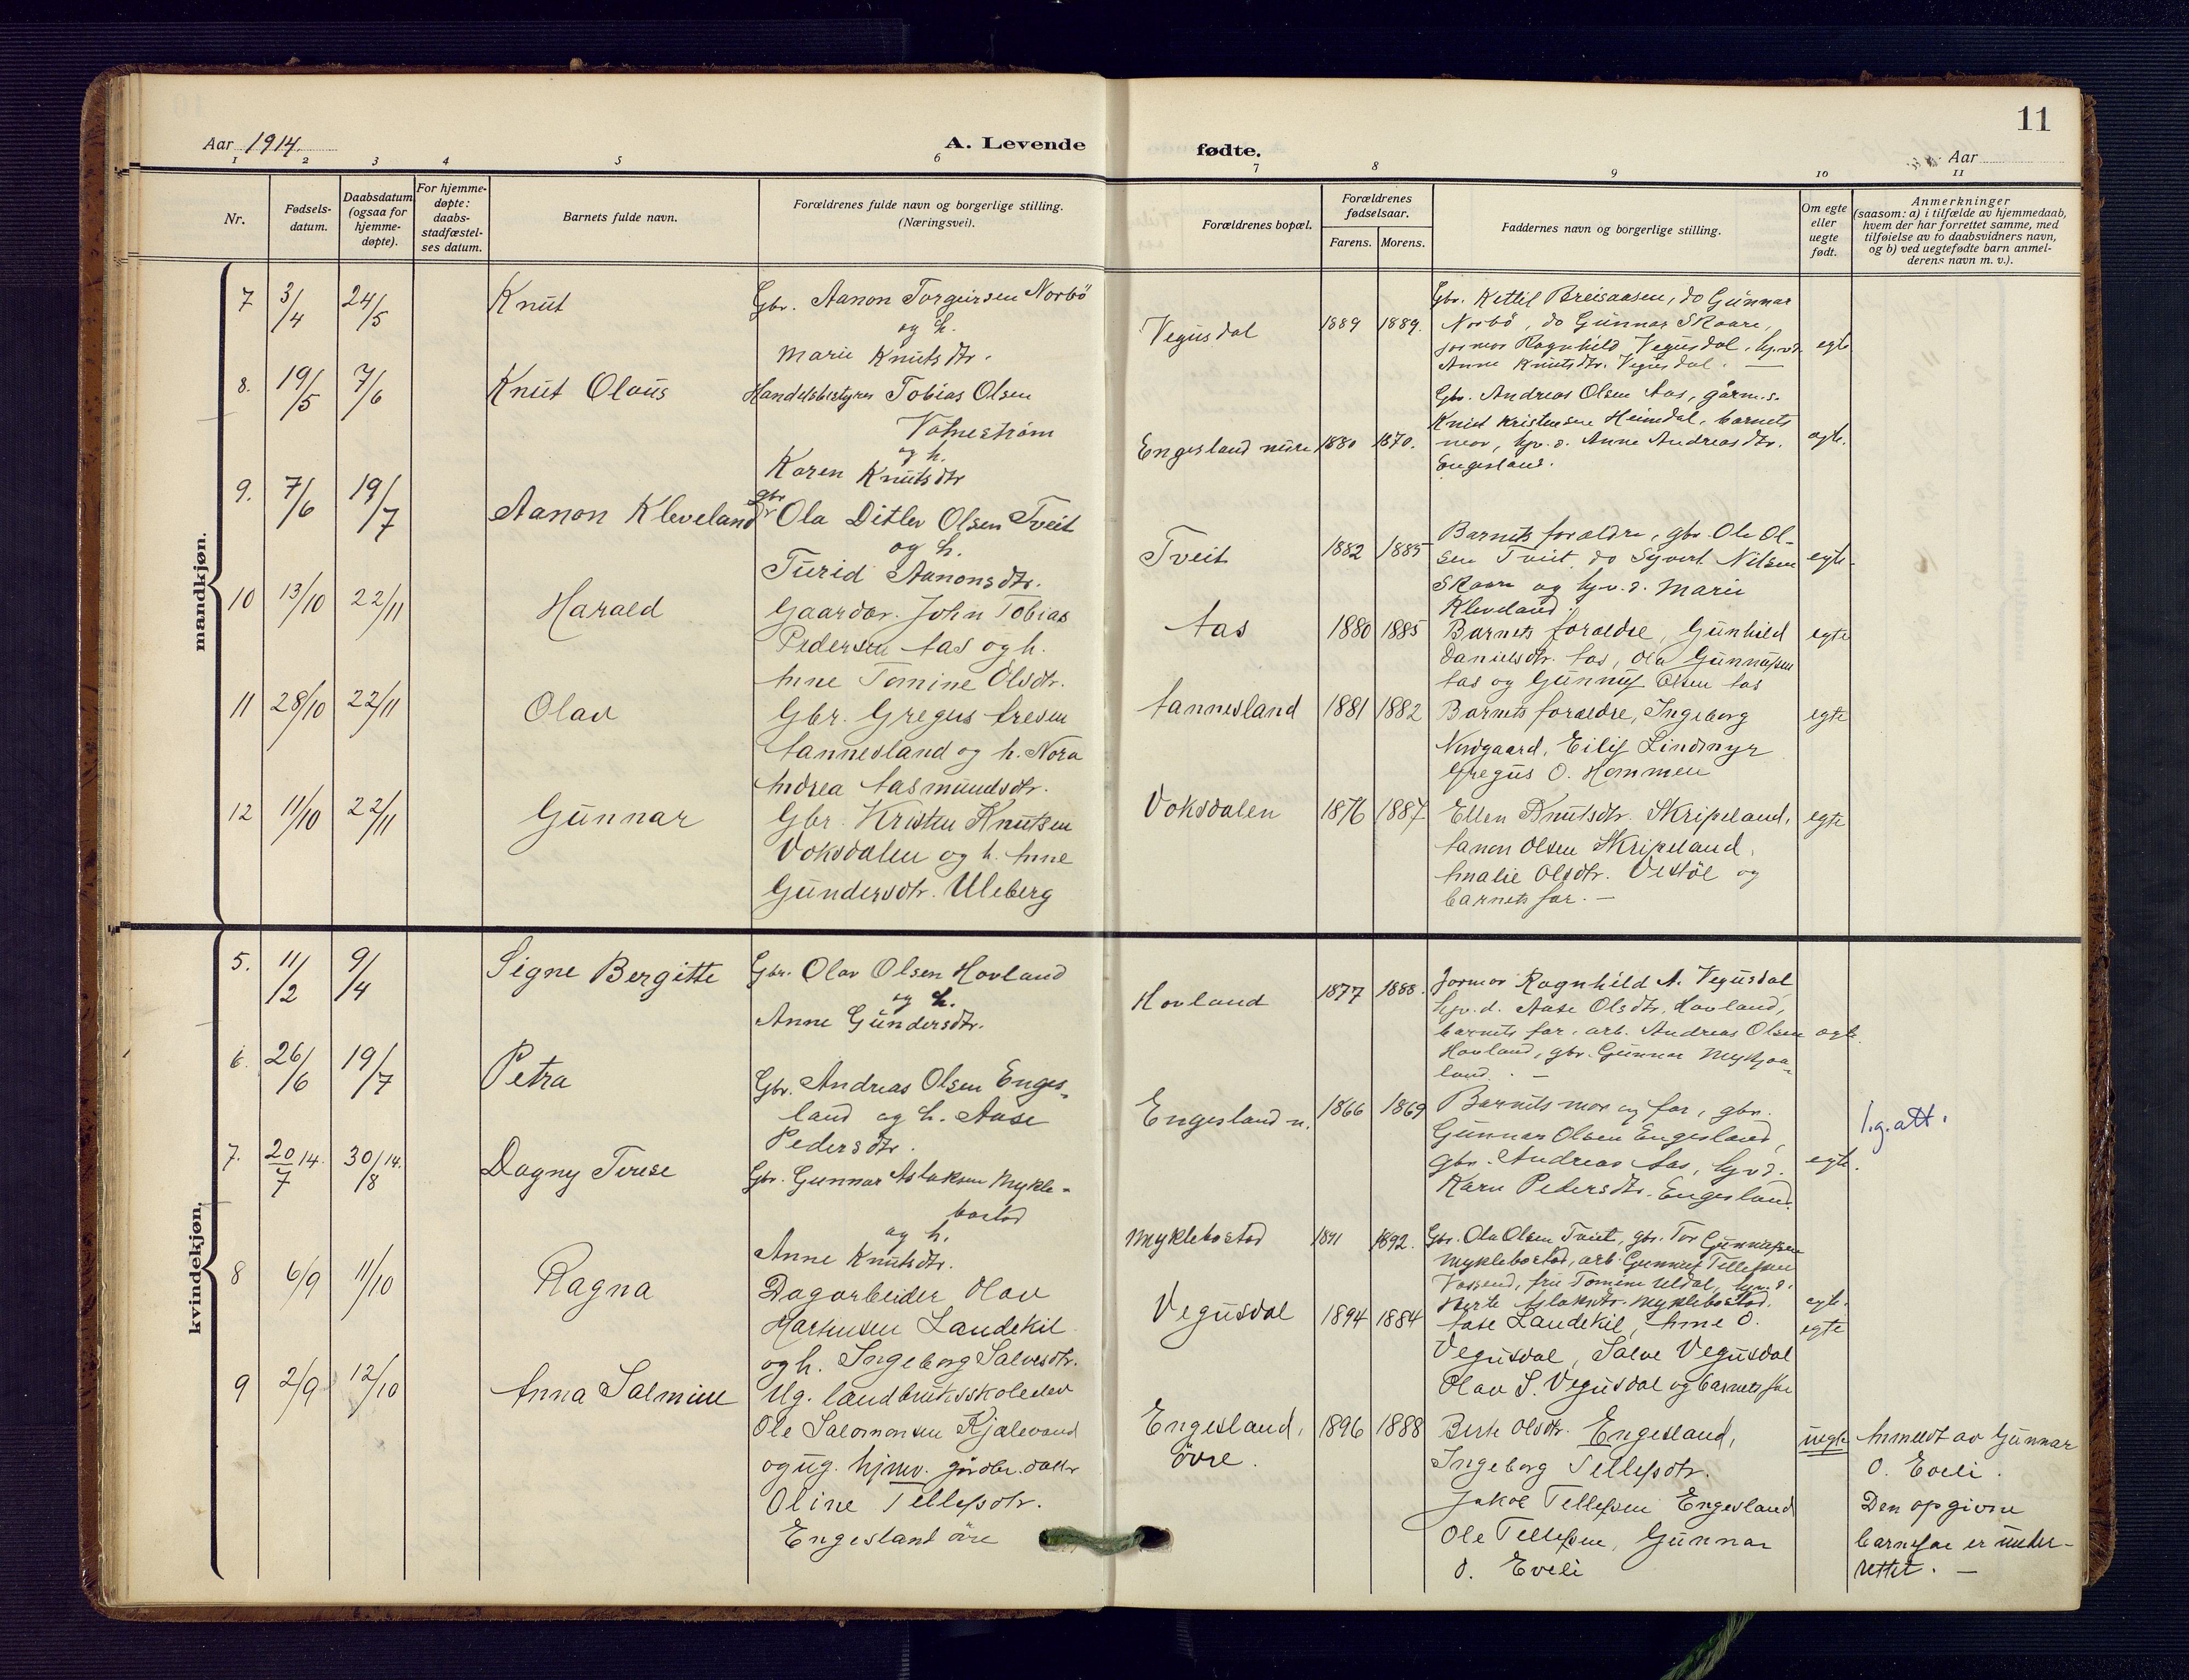 11
Aar 1914.
A. Levende fødte.
Aar
1 2 3 4 5 6 7 8 9 10 11
Nr.
Fødsels-
datum.
Daabsdatum
(ogsaa for
hjemme-
døpte).
For hjemme-
døpte:
daabs-
stadfæstel-
ses datum.
Barnets fulde navn.
Forældrenes fulde navn og borgerlige stilling.
(Næringsvei).
Forældrenes bopæl.
Forældrenes
fødselsaar.
Farens. Morens.
Faddernes navn og borgerlige stilling.
Om egte
eller
uegte
født.
Anmerkninger
(saasom: a) i tilfælde av hjemmedaab,
hvem der har forrettet samme, med
tilføielse av to daabsvidners navn,
og b) ved uegtefødte barn anmel-
derens navn m. v.).
mandkjøn.
7 3/4 24/5 Knut
Gbr. Aanon Torgeirsen Norbö
og h.
Marie Knutsdtr.
Vegusdal 1889 1889.
Gbr. Kettil Breisaasen, do Gunnar
Norbö, do Gunnar Skaare,
formor Ragnhild Vegusdal, hpv.d.
Anne Knutsdtr. Vegusdal. —
egte
8. 19/5 7/6 Knut Olaus
Handelsbestyrer Tobias Olsen
Vatnestrøm
og h.
Karen Knutsdtr
Engesland nedre 1880 1870.
Gbr. Andreas Olsen Aas, gårm.s.
Knut Kristensen Heimdal, barnets
mor, hpv.d. Anne Andreasdtr.
Engesland.
egte.
9. 7/6 19/7 Aanon Kleveland
gbr
Ola Ditlev Olsen Tveit
og h.
Turid Aanonsdtr.
Tveit 1882 1885
Barnets forældre, gbr. Ole Ol-
sen Tveit, do Syvert Nilsen
Skaare og hpv.d. Marie
Kleveland.
egte.
10 13/10 22/11 Harald
Gaardbr. John Tobias
Pedersen Aas og h.
Anne Tomine Olsdtr.
Aas 1880 1885
Barnets forældre, Gunhild
Danielsdtr. Aas, Ola Gunnufsen
Aas og Gunnuf Olsen Aas
egte
11 28/10 22/11 Olav
Gbr. Gregus Aresen
Aannesland og h. Nora
Andrea Aasmundsdtr.
Aannesland 1881 1882
Barnets forældre, Ingeborg
Nordgaard, Eilif Lindmyr
Gregus O. Hommen
egte
12 11/10 22/11 Gunnar
Gbr. Kristen Knutsen
Voksdalen og h. Anne
Gundersdtr. Uleberg
Voksdalen 1876 1887
Ellen Knutsdtr. Skripeland,
Aanon Olsen Skripeland,
Amalie Olsdtr. Vestöl og
barnets far. —
egte
kvindekjøn.
5. 11/2 9/4 Signe Bergitte
Gbr. Olav Olsen Hovland
og h.
Anne Gundersdtr.
Hovland 1877 1888.
Formor Ragnhild A. Vegusdal,
hpv.d. Aase Olsdtr. Hovland,
barnets far, arb. Andreas Olsen
Hovland, gbr. Gunnar Mykjaa-
land. —
egte.
6. 26/6 19/7 Petra
Gbr. Andreas Olsen Enges-
land og h. Aase
Pedersdtr.
Engesland n. 1866 1869
Barnets mor og far, gbr.
Gunnar Olsen Engesland,
gbr. Andreas Aas, hpv.d.
Karen Pedersdtr. Engesland.
egte.
l.g.att.
7. 20/7 14. 30/8 14. Dagny Terese
Gbr. Gunnar Aslaksen Mykle-
bostad
og h.
Anne Knutsdtr.
Myklebostad 1891 1892.
Gbr. Ola Olsen Tveit, gbr. Tor Gunnufsen
Myklebostad, arb. Gunnuf Tellefsen
Vassend, fru Tomine Uldal, hpv.d.
Berte Aslaksdtr. Myklebostad.
egte.
8 6/9 11/10 Ragna
Dagarbeider Olav
Martinsen Landekil
og h. Ingeborg Salvesdtr.
Vegusdal 1894 1884
Aase Landekil, Anne O.
Vegusdal, Salve Vegusdal
Olav S. Vegusdal og barnets far
egte
9 2/9 12/10 Anna Salmine
Ug. landbruksskoleelev
Ole Salomonsen Kjalevand
og ug. hjmv. gårdbr. datter
Oline Tellefsdtr.
Engesland övre
Engesland,
övre.
1896 1888
Berte Olsdtr. Engesland,
Ingeborg Tellefsdtr.
Jakob Tellefsen Engesland
Ole Tellefsen, Gunnar
O. Eveli
uegte
Anmeldt av Gunnar
O. Eveli.
Den opgivne
barnefar er under-
rettet. —